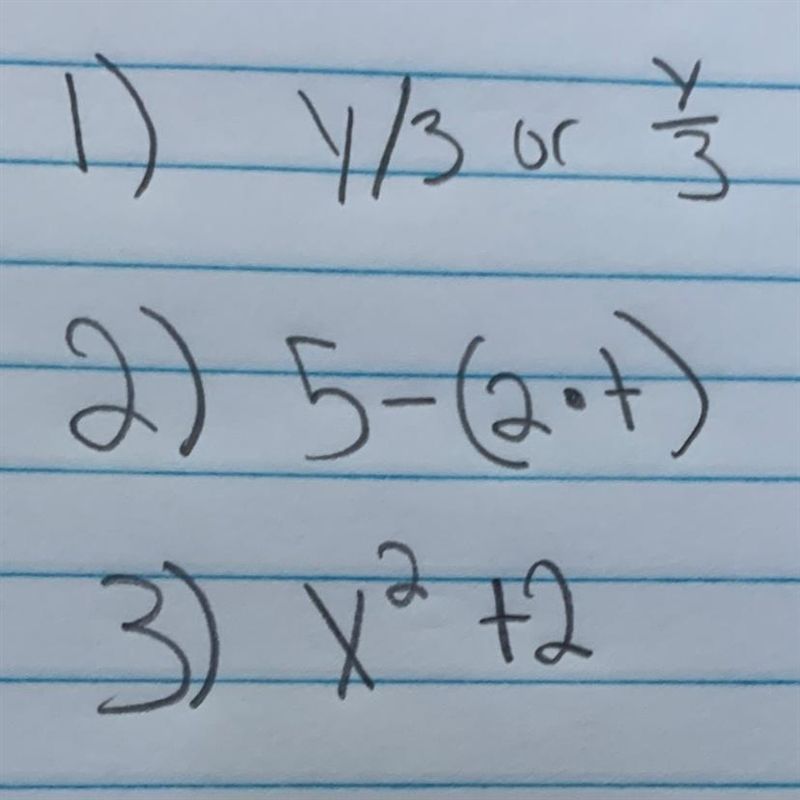 1) y/3 or y/3
2) 5-(2•t)
3) x² +2